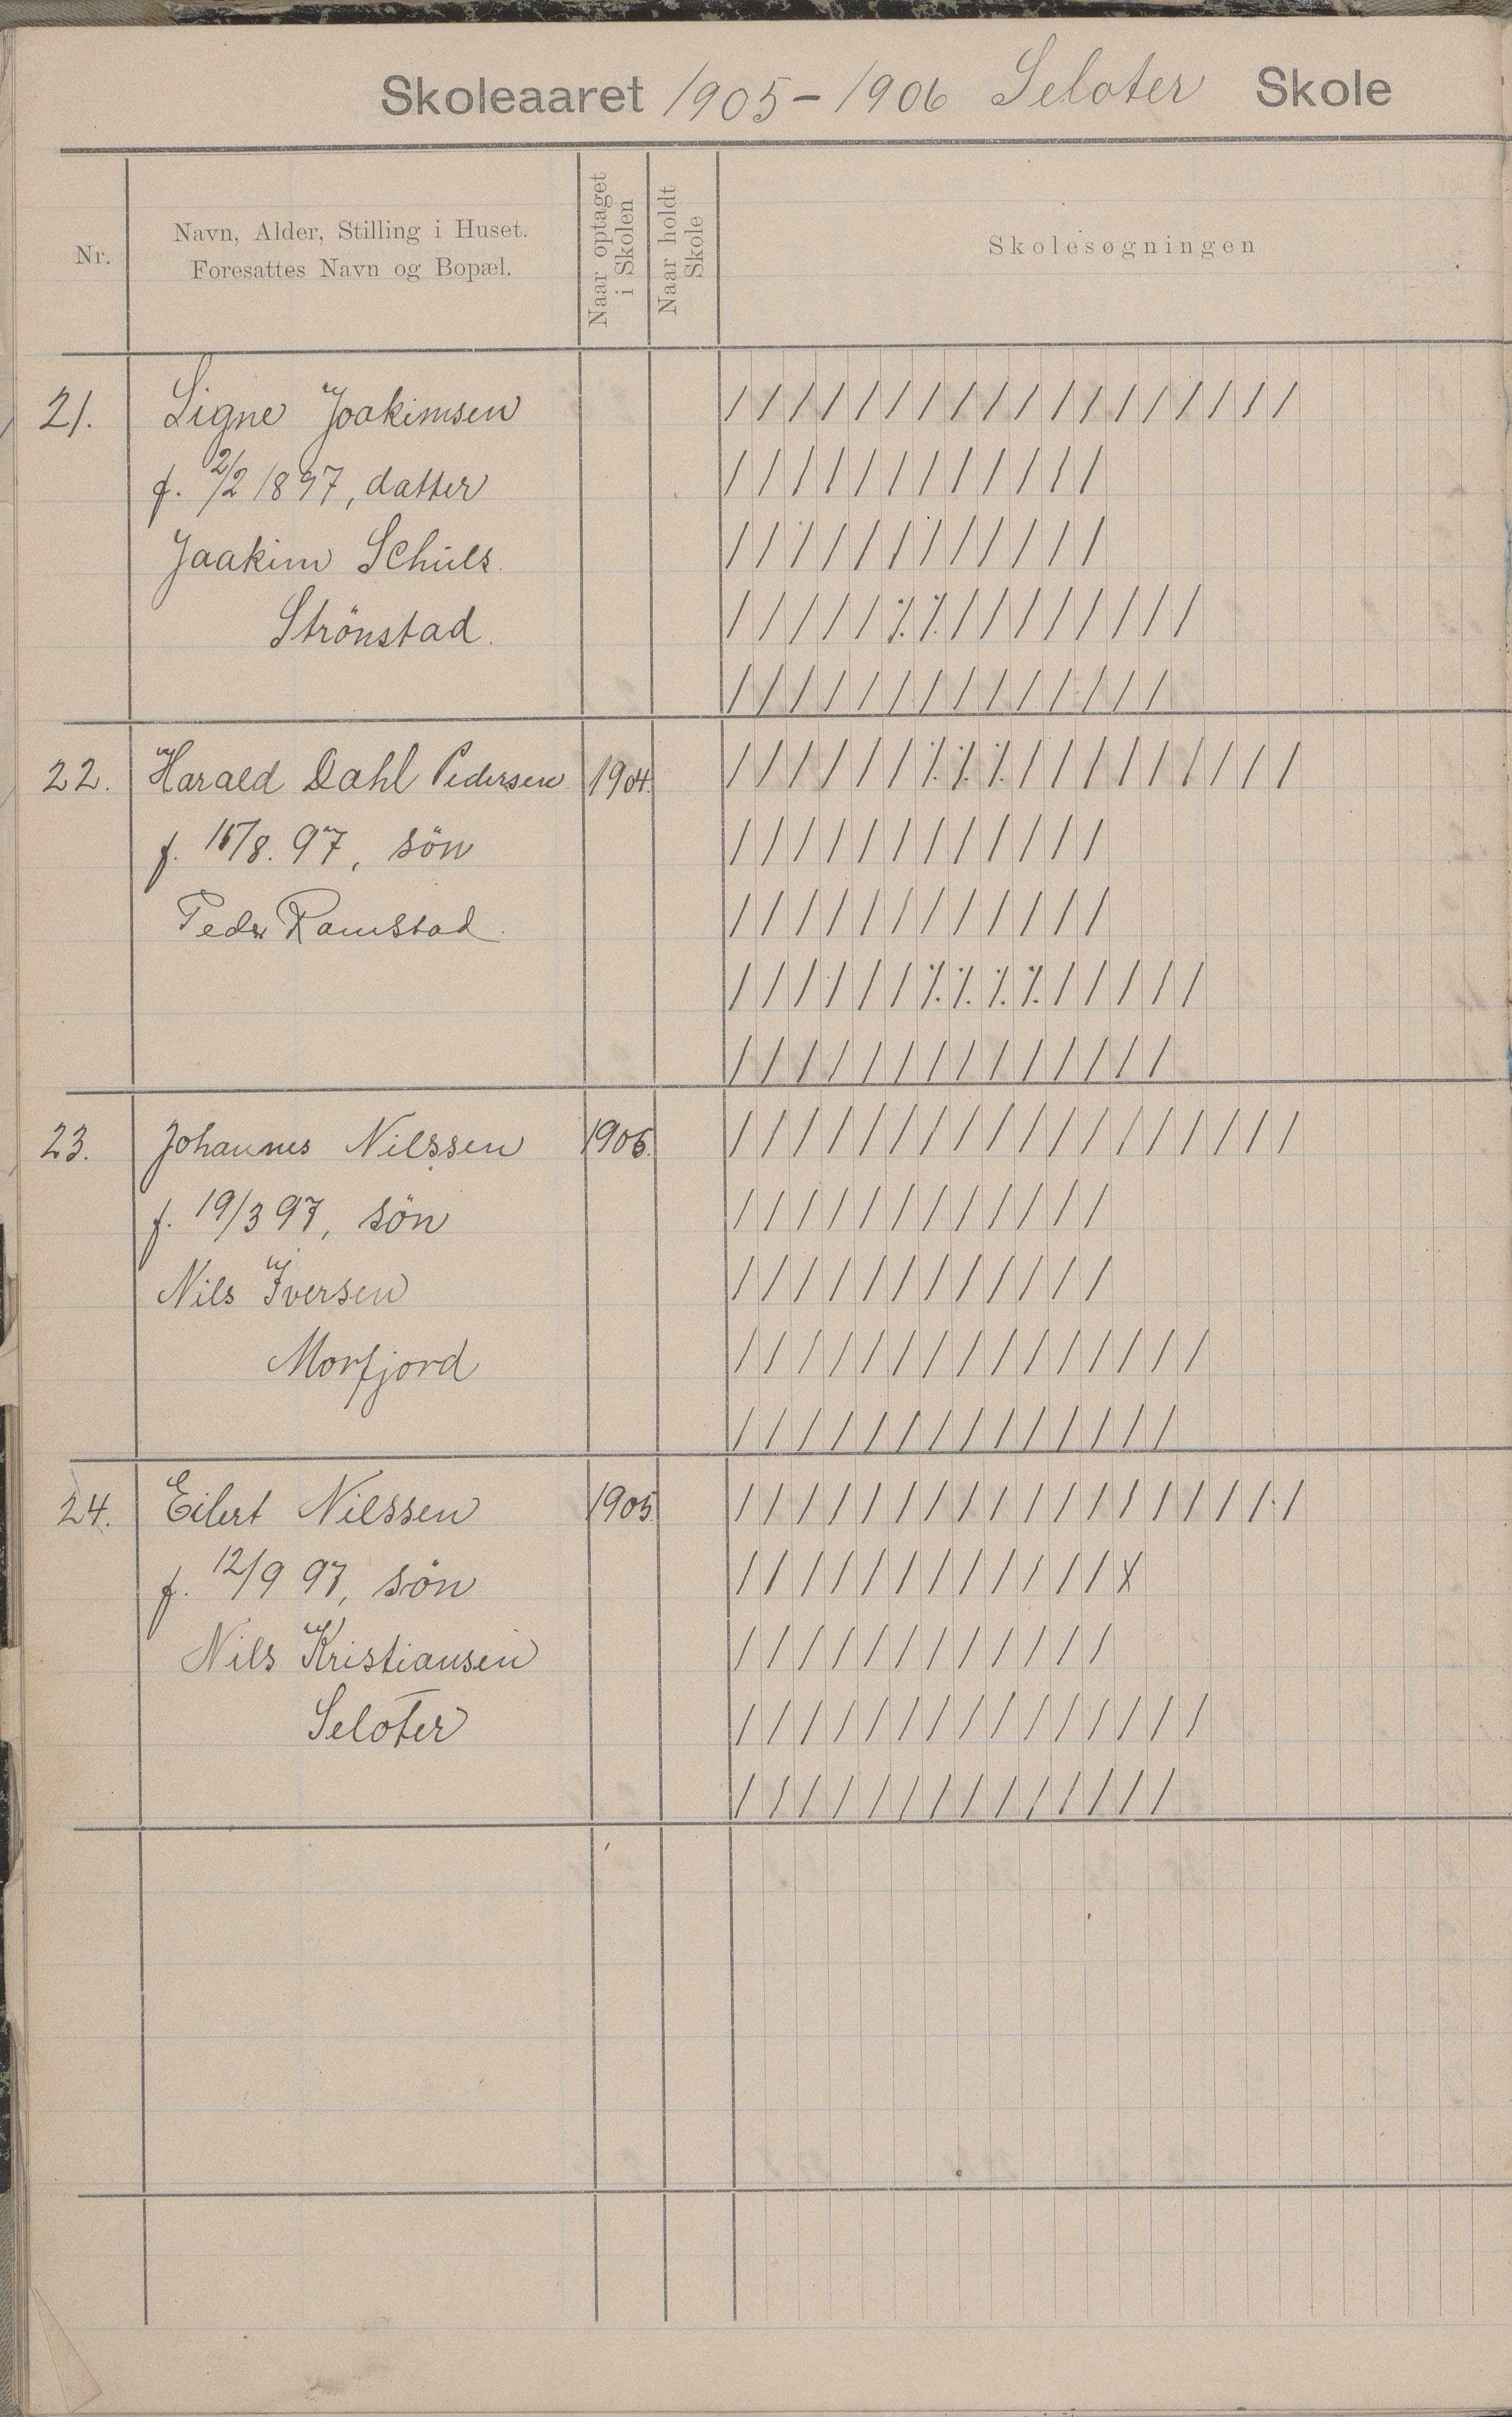 Skoleaaret 1905-1906 Seloter Skole
Nr.
Navn, Alder, Stilling i Huset.
Foresattes Navn og Bopæl.
Naar optaget
i Skolen
Naar holdt
Skole
Skolesøgningen
21. Signe Joakimsen / / / / / / / / / / / / / / / / / /
f. 2/2 1897, datter / / / / / / / / / / / /
Jaakim Schuls. / / / / / / / / / / / /
Strönstad. / / / / / ⁒ ⁒ / / / / / / / /
/ / / / / / / / / / / / / /
22. Harald Dahl Pedersen. 1904. / / / / / / ⁒ ⁒ ⁒ / / / / / / / / /
f. 15/8. 97, sön / / / / / / / / / / / /
Peder Ramstad. / / / / / / / / / / / /
/ / / / / / ⁒ ⁒ ⁒ ⁒ / / / / /
/ / / / / / / / / / / / / /
23. Johannes Nilssen 1905. / / / / / / / / / / / / / / / / / /
f. 19/3 97, sön / / / / / / / / / / / /
Nils Iversen / / / / / / / / / / / /
Morfjord / / / / / / / / / / / / / / /
/ / / / / / / / / / / / / /
24. Eilert Nilssen 1905. / / / / / / / / / / / / / / / / / /
f. 12/9 97, sön / / / / / / / / / / / / x
Nils Kristiansen / / / / / / / / / / / /
Seloter / / / / / / / / / / / / / / /
/ / / / / / / / / / / / / /